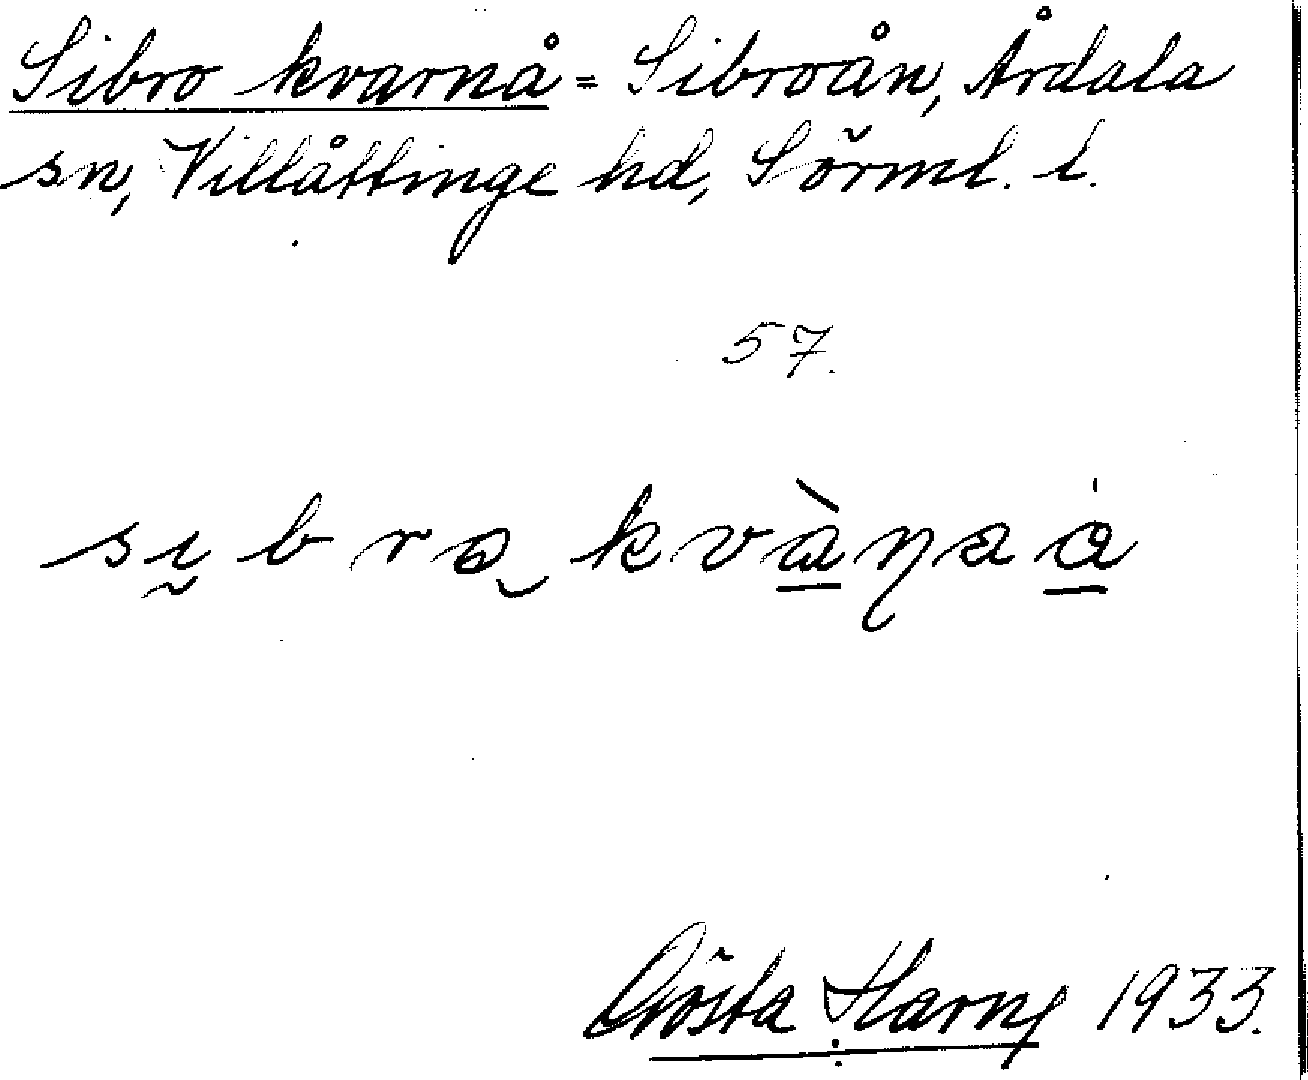 Sibro kvarnå = Sibroån, Årdala
sn, Villåttinge hd, Sörml. l.
57.
Gösta Harny 1933.